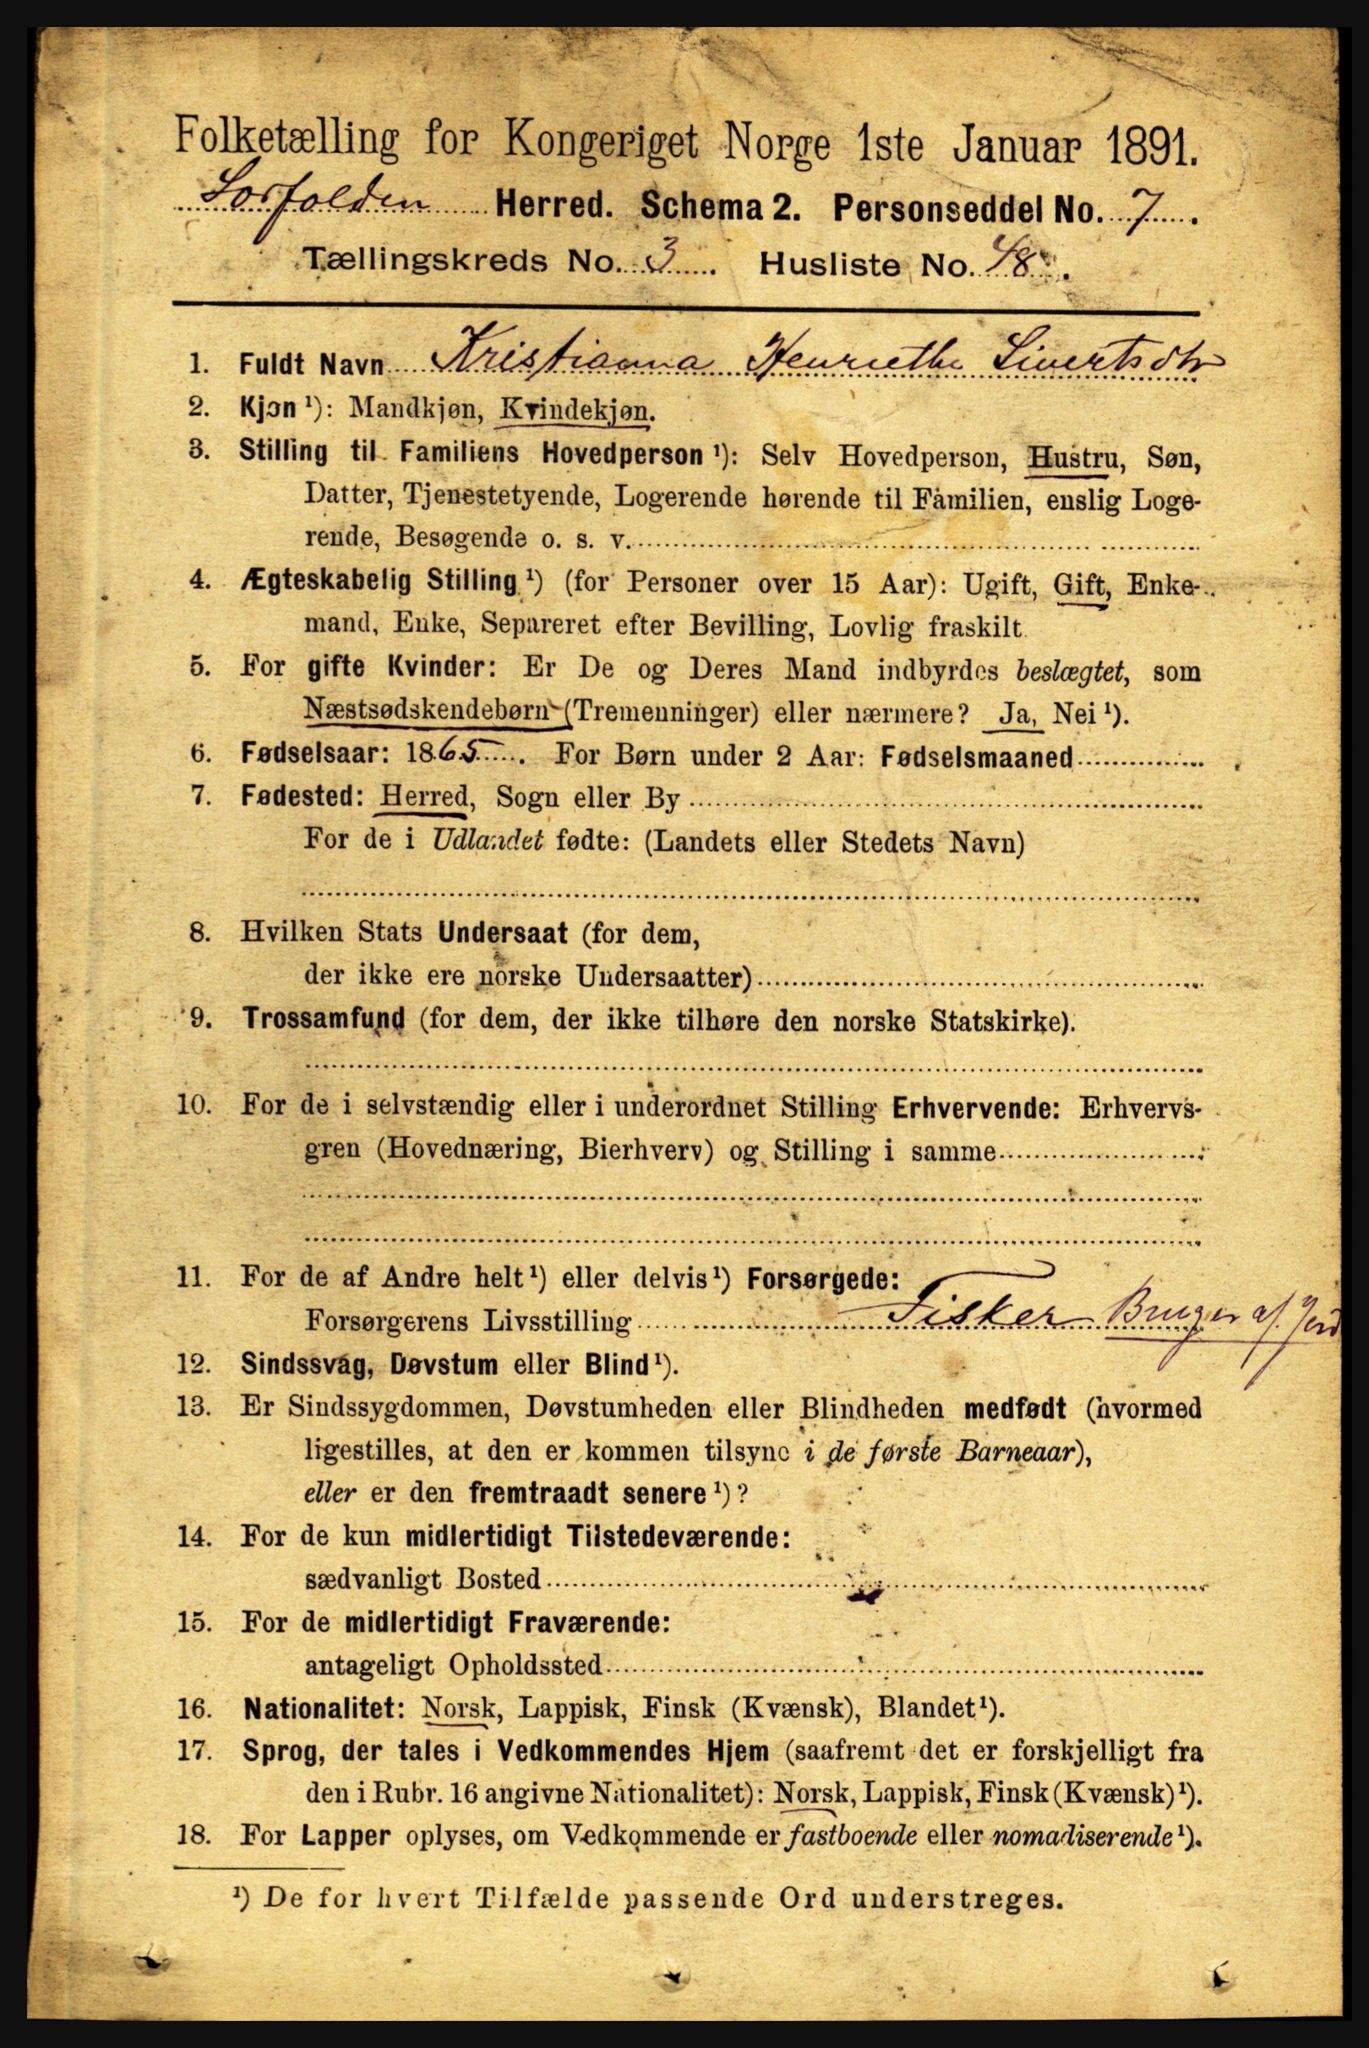 Folketælling for Kongeriget Norge 1ste Januar 1891.
Sorfolden Herred. Schema 2. Personseddel No. 7.
Tællingskreds No. 3. Husliste No. 48.
1. Fuldt Navn Kristianna Henriethe Sivertsdtr
2. Kjøn ¹): Mandkjøn, Kvindekjøn.
3. Stilling til Familiens Hovedperson ¹): Selv Hovedperson, Hustru, Søn,
Datter, Tjenestetyende, Logerende hørende til Familien, enslig Loge-
rende, Besøgende o. s. v.
4. Ægteskabelig Stilling ¹) (for Personer over 15 Aar): Ugift, Gift, Enke-
mand, Enke, Separeret efter Bevilling, Lovlig fraskilt
5. For gifte Kvinder: Er De og Deres Mand indbyrdes beslægtet, som
Næstsødskendebørn (Tremenninger) eller nærmere? Ja, Nei ¹).
6. Fødselsaar: 1865. For Børn under 2 Aar: Fødselsmaaned
7. Fødested: Herred, Sogn eller By
For de i Udlandet fødte: (Landets eller Stedets Navn)
8. Hvilken Stats Undersaat (for dem,
der ikke ere norske Undersaatter)
9. Trossamfund (for dem, der ikke tilhøre den norske Statskirke).
10. For de i selvstændig eller i underordnet Stilling Erhvervende: Erhvervs-
gren (Hovednæring, Bierhverv) og Stilling i samme
11. For de af Andre helt ¹) eller delvis ¹) Forsørgede:
Forsørgerens Livsstilling Fisker Bruger af Jord
12. Sindssvag, Døvstum eller Blind ¹).
13. Er Sindssygdommen, Døvstumheden eller Blindheden medfødt (hvormed
ligestilles, at den er kommen tilsyne i de første Barneaar),
eller er den fremtraadt senere ¹)?
14. For de kun midlertidigt Tilstedeværende:
sædvanligt Bosted
15. For de midlertidigt Fraværende:
antageligt Opholdssted
16. Nationalitet: Norsk, Lappisk, Finsk (Kvænsk), Blandet ¹).
17. Sprog, der tales i Vedkommendes Hjem (saafremt det er forskjelligt fra
den i Rubr. 16 angivne Nationalitet): Norsk, Lappisk, Finsk (Kvænsk) ¹).
18. For Lapper oplyses, om Vedkommende er fastboende eller nomadiserende ¹).
¹) De for hvert Tilfælde passende Ord understreges.